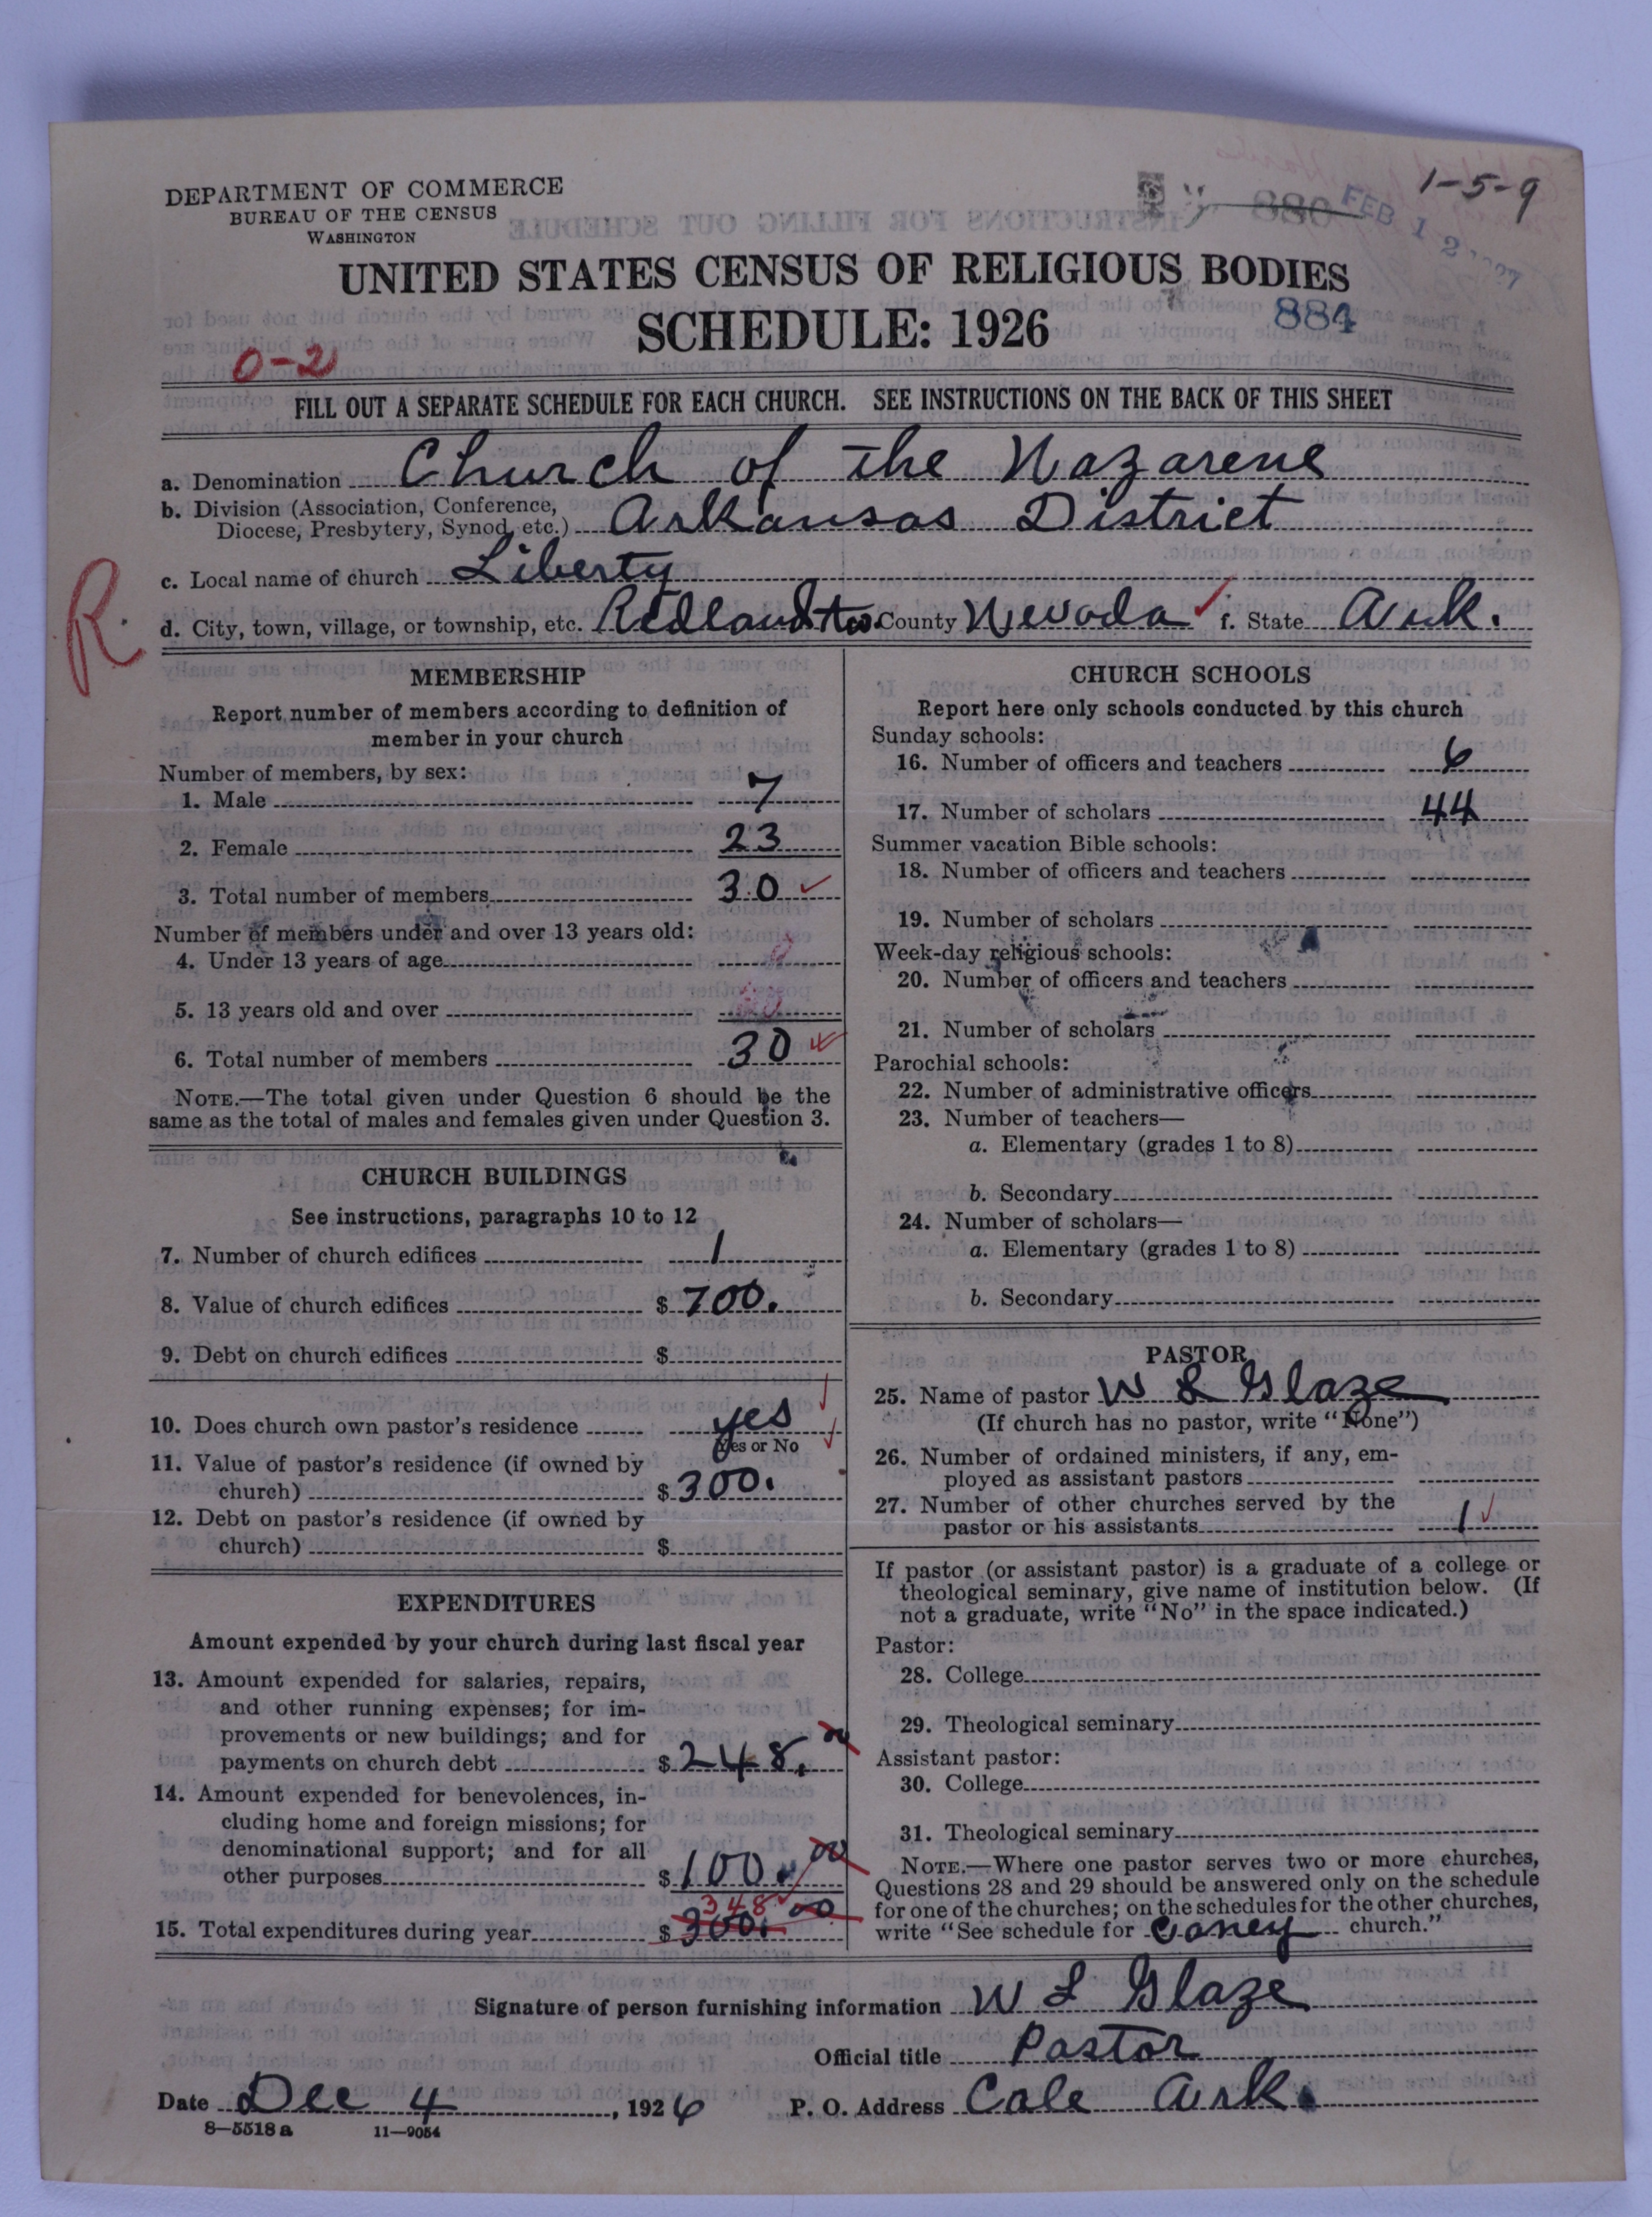 1-5-9
880
FEB 12
DEPARTMENT OF COMMERCE
BUREAU OF THE CENSUS
WASHINGTON
UNITED STATES CENSUS OF RELIGIOUS BODIES
SCHEDULE: 1926
884
0-2
FILL OUT A SEPARATE SCHEDULE FOR EACH CHURCH. SEE INSTRUCTIONS ON THE BACK OF THIS SHEET
a. Denomination Church of the Nazarene
b. Division (Association, Conference,
Diocese, Presbytery, Synod, etc.) Arkansas District
c. Local name of church Liberty
R.
d. City, town, village, or township, etc. Redland Tw. County Nevada ✓ f. State Ark.
MEMBERSHIP
Report number of members according to definition of
member in your church
Number of members, by sex:
1. Male 7
2. Female 23
3. Total number of members 30 ✓
Number of members under and over 13 years old:
4. Under 13 years of age
5. 13 years old and over
6. Total number of members 30
NOTE.—The total given under Question 6 should be the
same as the total of males and females given under Question 3.
CHURCH BUILDINGS
See instructions, paragraphs 10 to 12
7. Number of church edifices 1
8. Value of church edifices $ 700.
9. Debt on church edifices $
10. Does church own pastor's residence yes
Yes or No
11. Value of pastor's residence (if owned by
church) $ 300.
12. Debt on pastor's residence (if owned by
church) $
EXPENDITURES
Amount expended by your church during last fiscal year
13. Amount expended for salaries, repairs,
and other running expenses; for im-
provements or new buildings; and for
payments on church debt $ 248. 00
14. Amount expended for benevolences, in-
cluding home and foreign missions; for
denominational support; and for all
other purposes $ 100. 00
348 ✓
15. Total expenditures during year $ 300. 00
CHURCH SCHOOLS
Report here only schools conducted by this church
Sunday schools:
16. Number of officers and teachers 6
17. Number of scholars 44
Summer vacation Bible schools:
18. Number of officers and teachers
19. Number of scholars
Week-day religious schools:
20. Number of officers and teachers
21. Number of scholars
Parochial schools:
22. Number of administrative officers
23. Number of teachers—
a. Elementary (grades 1 to 8)
b. Secondary
24. Number of scholars—
a. Elementary (grades 1 to 8)
b. Secondary
PASTOR
25. Name of pastor W L Glaze
(If church has no pastor, write "None")
26. Number of ordained ministers, if any, em-
ployed as assistant pastors
27. Number of other churches served by the
pastor or his assistants 1 ✓
If pastor (or assistant pastor) is a graduate of a college or
theological seminary, give name of institution below. (If
not a graduate, write "No" in the space indicated.)
Pastor:
28. College
29. Theological seminary
Assistant pastor:
30. College
31. Theological seminary
NOTE.—Where one pastor serves two or more churches,
Questions 28 and 29 should be answered only on the schedule
for one of the churches; on the schedules for the other churches,
write "See schedule for Caney church."
Signature of person furnishing information W L Glaze
Official title Pastor
Date Dec 4, 1926 P. O. Address Cale Ark.
8—5518 a 11—9054